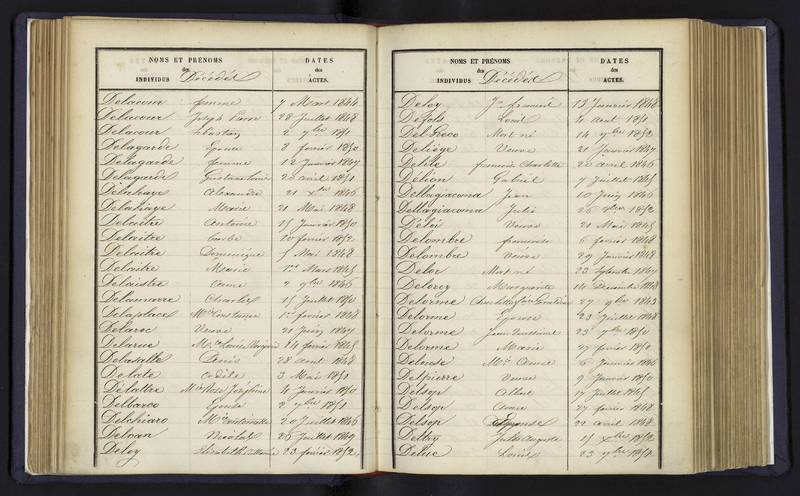 NOMS ET PRÉNOMS DATES
des des
INDIVIDUS Décédés ACTES.
Delacour femme 7 Mars 1844
Delacour Joseph Pierre 28 Juillet 1848
Delacour 2 7bre 1851
Delagarde Epouse 8 fevrier 1850
Delagarde femme 12 Janvier 1847
Delagarde 20 avril 1851
Delahaye Alexandre 21 Xbre 1846
Delahaye Marie 21 Mai 1848
Delaitre Antoine 15 Janvier 1850
Delaitre Barbe 20 fevrier 1852
Delaitre Dominique 5 Mai 1848
Delaitre Marie 1er Mars 1845
Delaistre Anne 2 9bre 1846
Delamarre Charles 15 Juillet 1850
Delaplace Mie Constance 1er fevrier 1848
Delaroc Veuve 21 Juin 1847
Delarue Mie Louise 14 fevrier 1845
Delasalle Denis 28 aout 1848
Delate Odile 3 Mai 1851
Delattre Mie Rose Joséphine 4 Janvier 1850
Delbarco Epouse 2 7bre 1851
Delchiaro Mie Antoinette 20 Juillet 1846
Deloan Nicolas 26 Juillet 1849
Deloy Elisabeth 23 fevrier 1852
NOMS ET PRÉNOMS DATES
des des
INDIVIDUS Décédés ACTES.
Deloy 13 Janvier 1848
Defols Louis 4 aout 1851
Del Greco Mort né 14 7bre 1852
Deliège Veuve 21 Janvier 1847
Delile francoise Charlotte 29 avril 1846
Délion Gabriel 7 Juillet 1845
Dellagiacoma Jean 10 Juin 1846
Dellagiacoma Julie 26 1852
Deloi Veuve 21 Mai 1845
Delombre francoise 6 fevrier 1848
Delombre Veuve 29 Janvier 1848
Delor Mort né 23 Septembre 1847
Delorey Marguerite 14 Decembre 1848
Delorme 27 9bre 1843
Delorme Epouse 23 Juillet 1848
Delorme Jean Toussaint 23 7bre 1850
Delorme Marie 27 fevrier 1850
Delouse Mie Anne 6 Janvier 1846
Delpierre Veuve 9 Janvier 1850
Delsop Albert 17 Juillet 1845
Delsop Anne 27 fevrier 1848
Delsop Epouse 22 avril 1848
Deltry Jules Auguste 15 Xbre 1852
Deluc Louis 23 7bre 1850